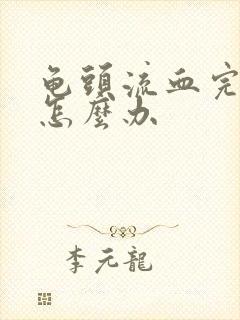 龟頭流血完
怎麼办
李元龍